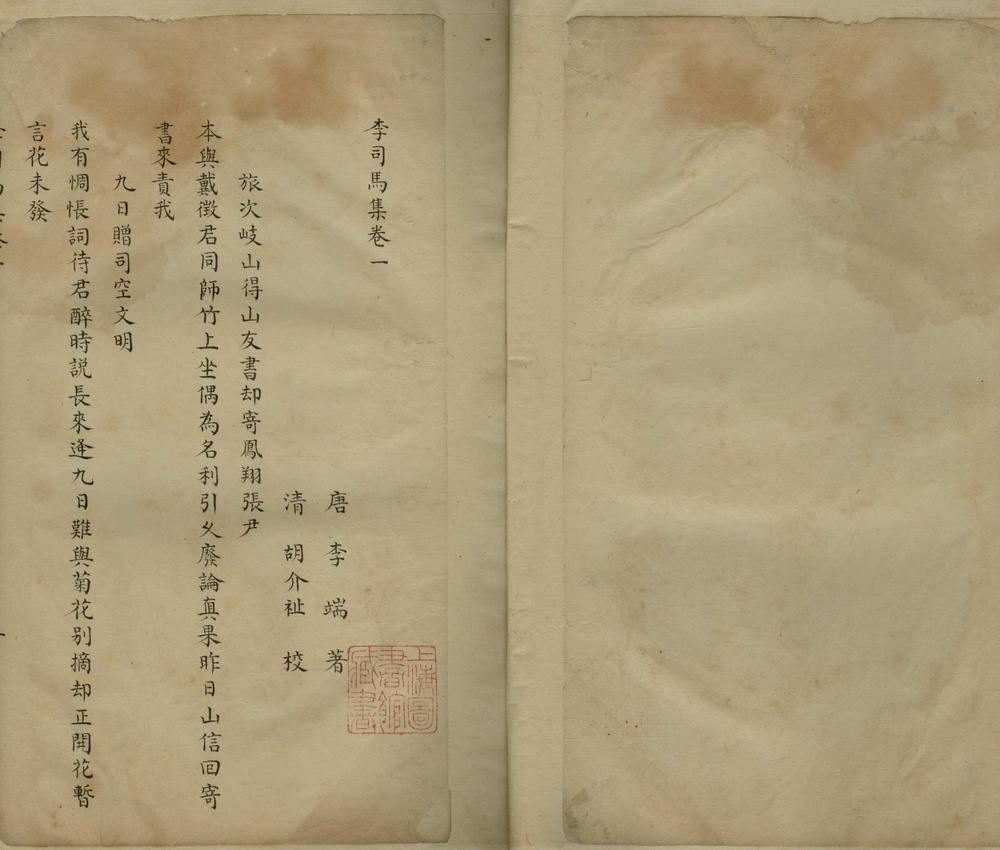 李司馬集卷一
唐 李 端 著
清 胡介祉 校
旅次岐山得山友書却寄鳳翔張尹
本與戴徵君同師竹上坐偶為名利引久廢論真果昨日山信回寄
書來責我
九日贈司空文明
我有惆悵詞待君醉時説長來逢九日難與菊花别摘却正開花暫
言花未發
上海圖書館藏書